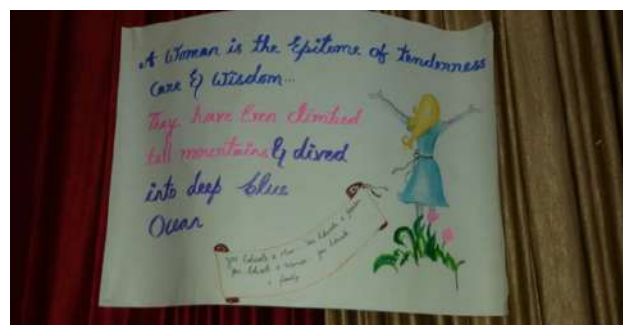 A Woman is the Epitome of tenderness
Care & Wisdom...
They have Even climbed
tall mountains & dived
into deep blue
Ocean
you Educate a Man you Educate a
you Educate a Woman you Educate
a family